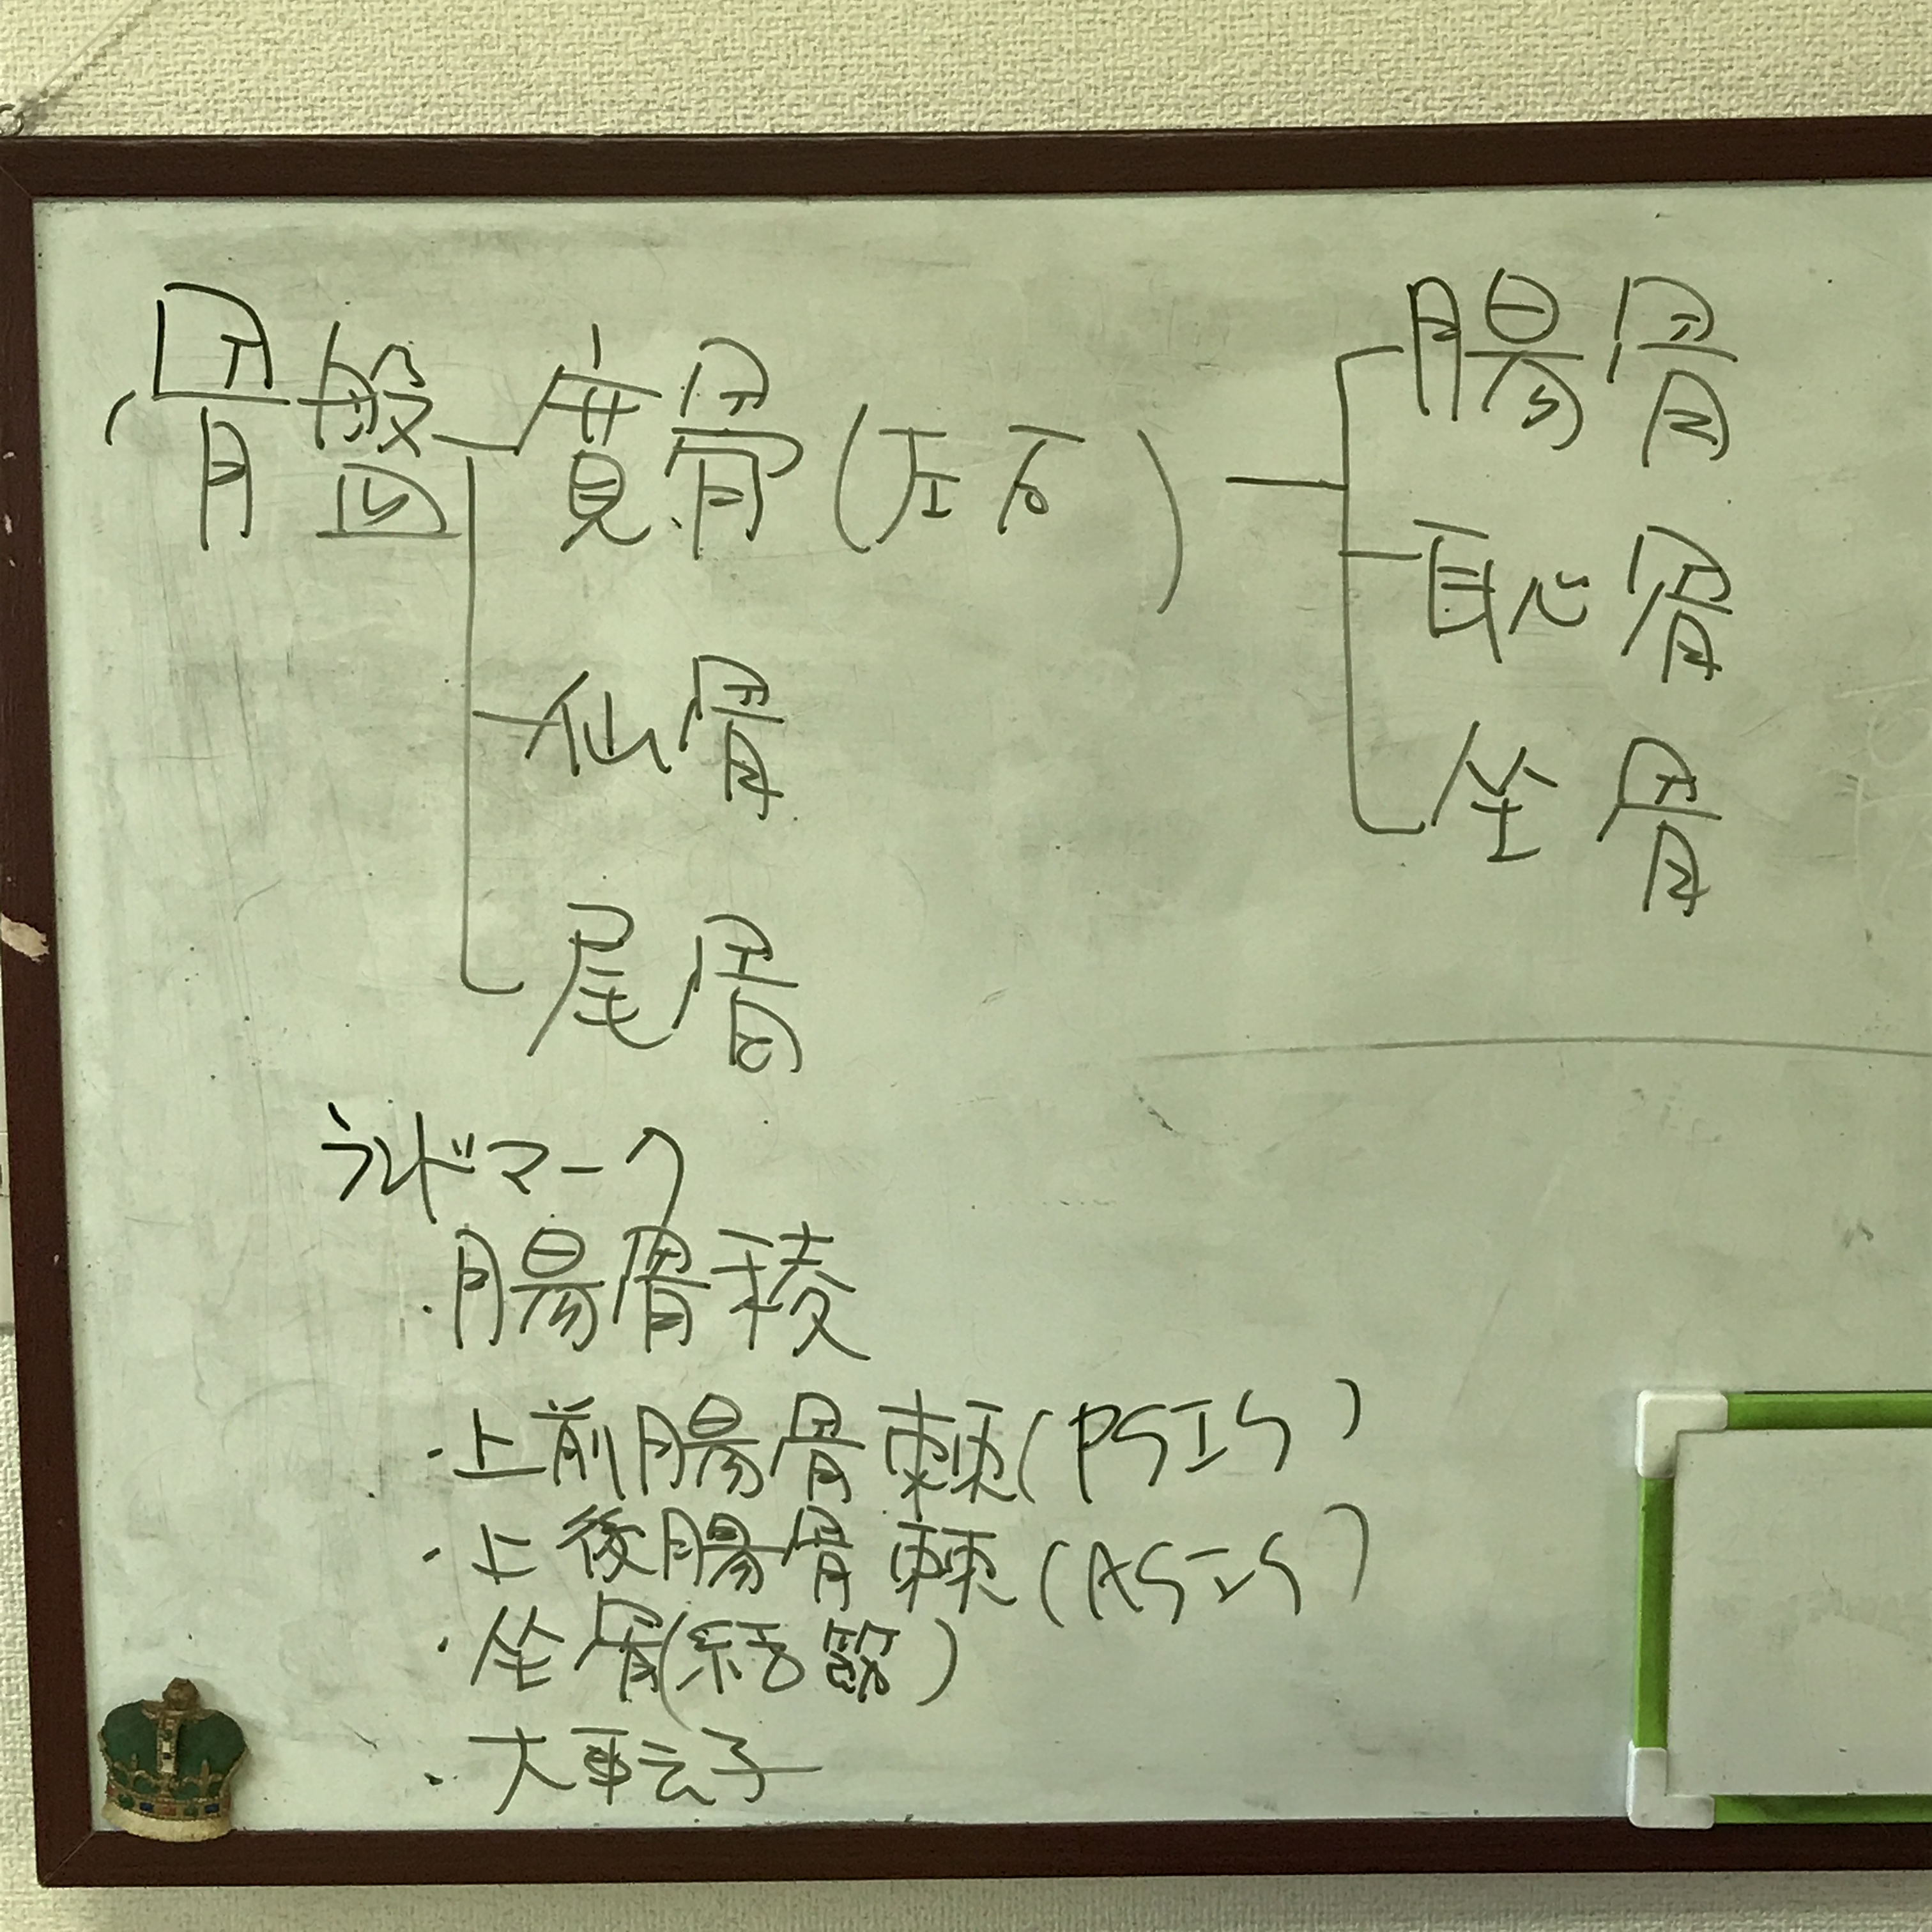 骨盤
寛骨(左右)
仙骨
尾骨
腸骨
恥骨
坐骨
ランドマーク
・腸骨稜
・上前腸骨棘(PSIS)
・上後腸骨棘(ASIS)
・坐骨(結節)
・大転子